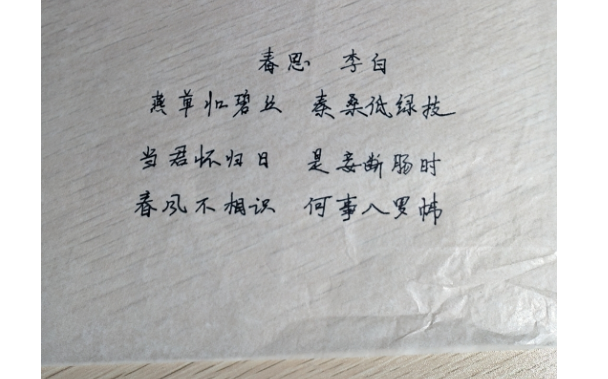 春思 李白
燕草如碧丝 秦桑低绿枝
当君怀归日 是妾断肠时
春风不相识 何事入罗帏